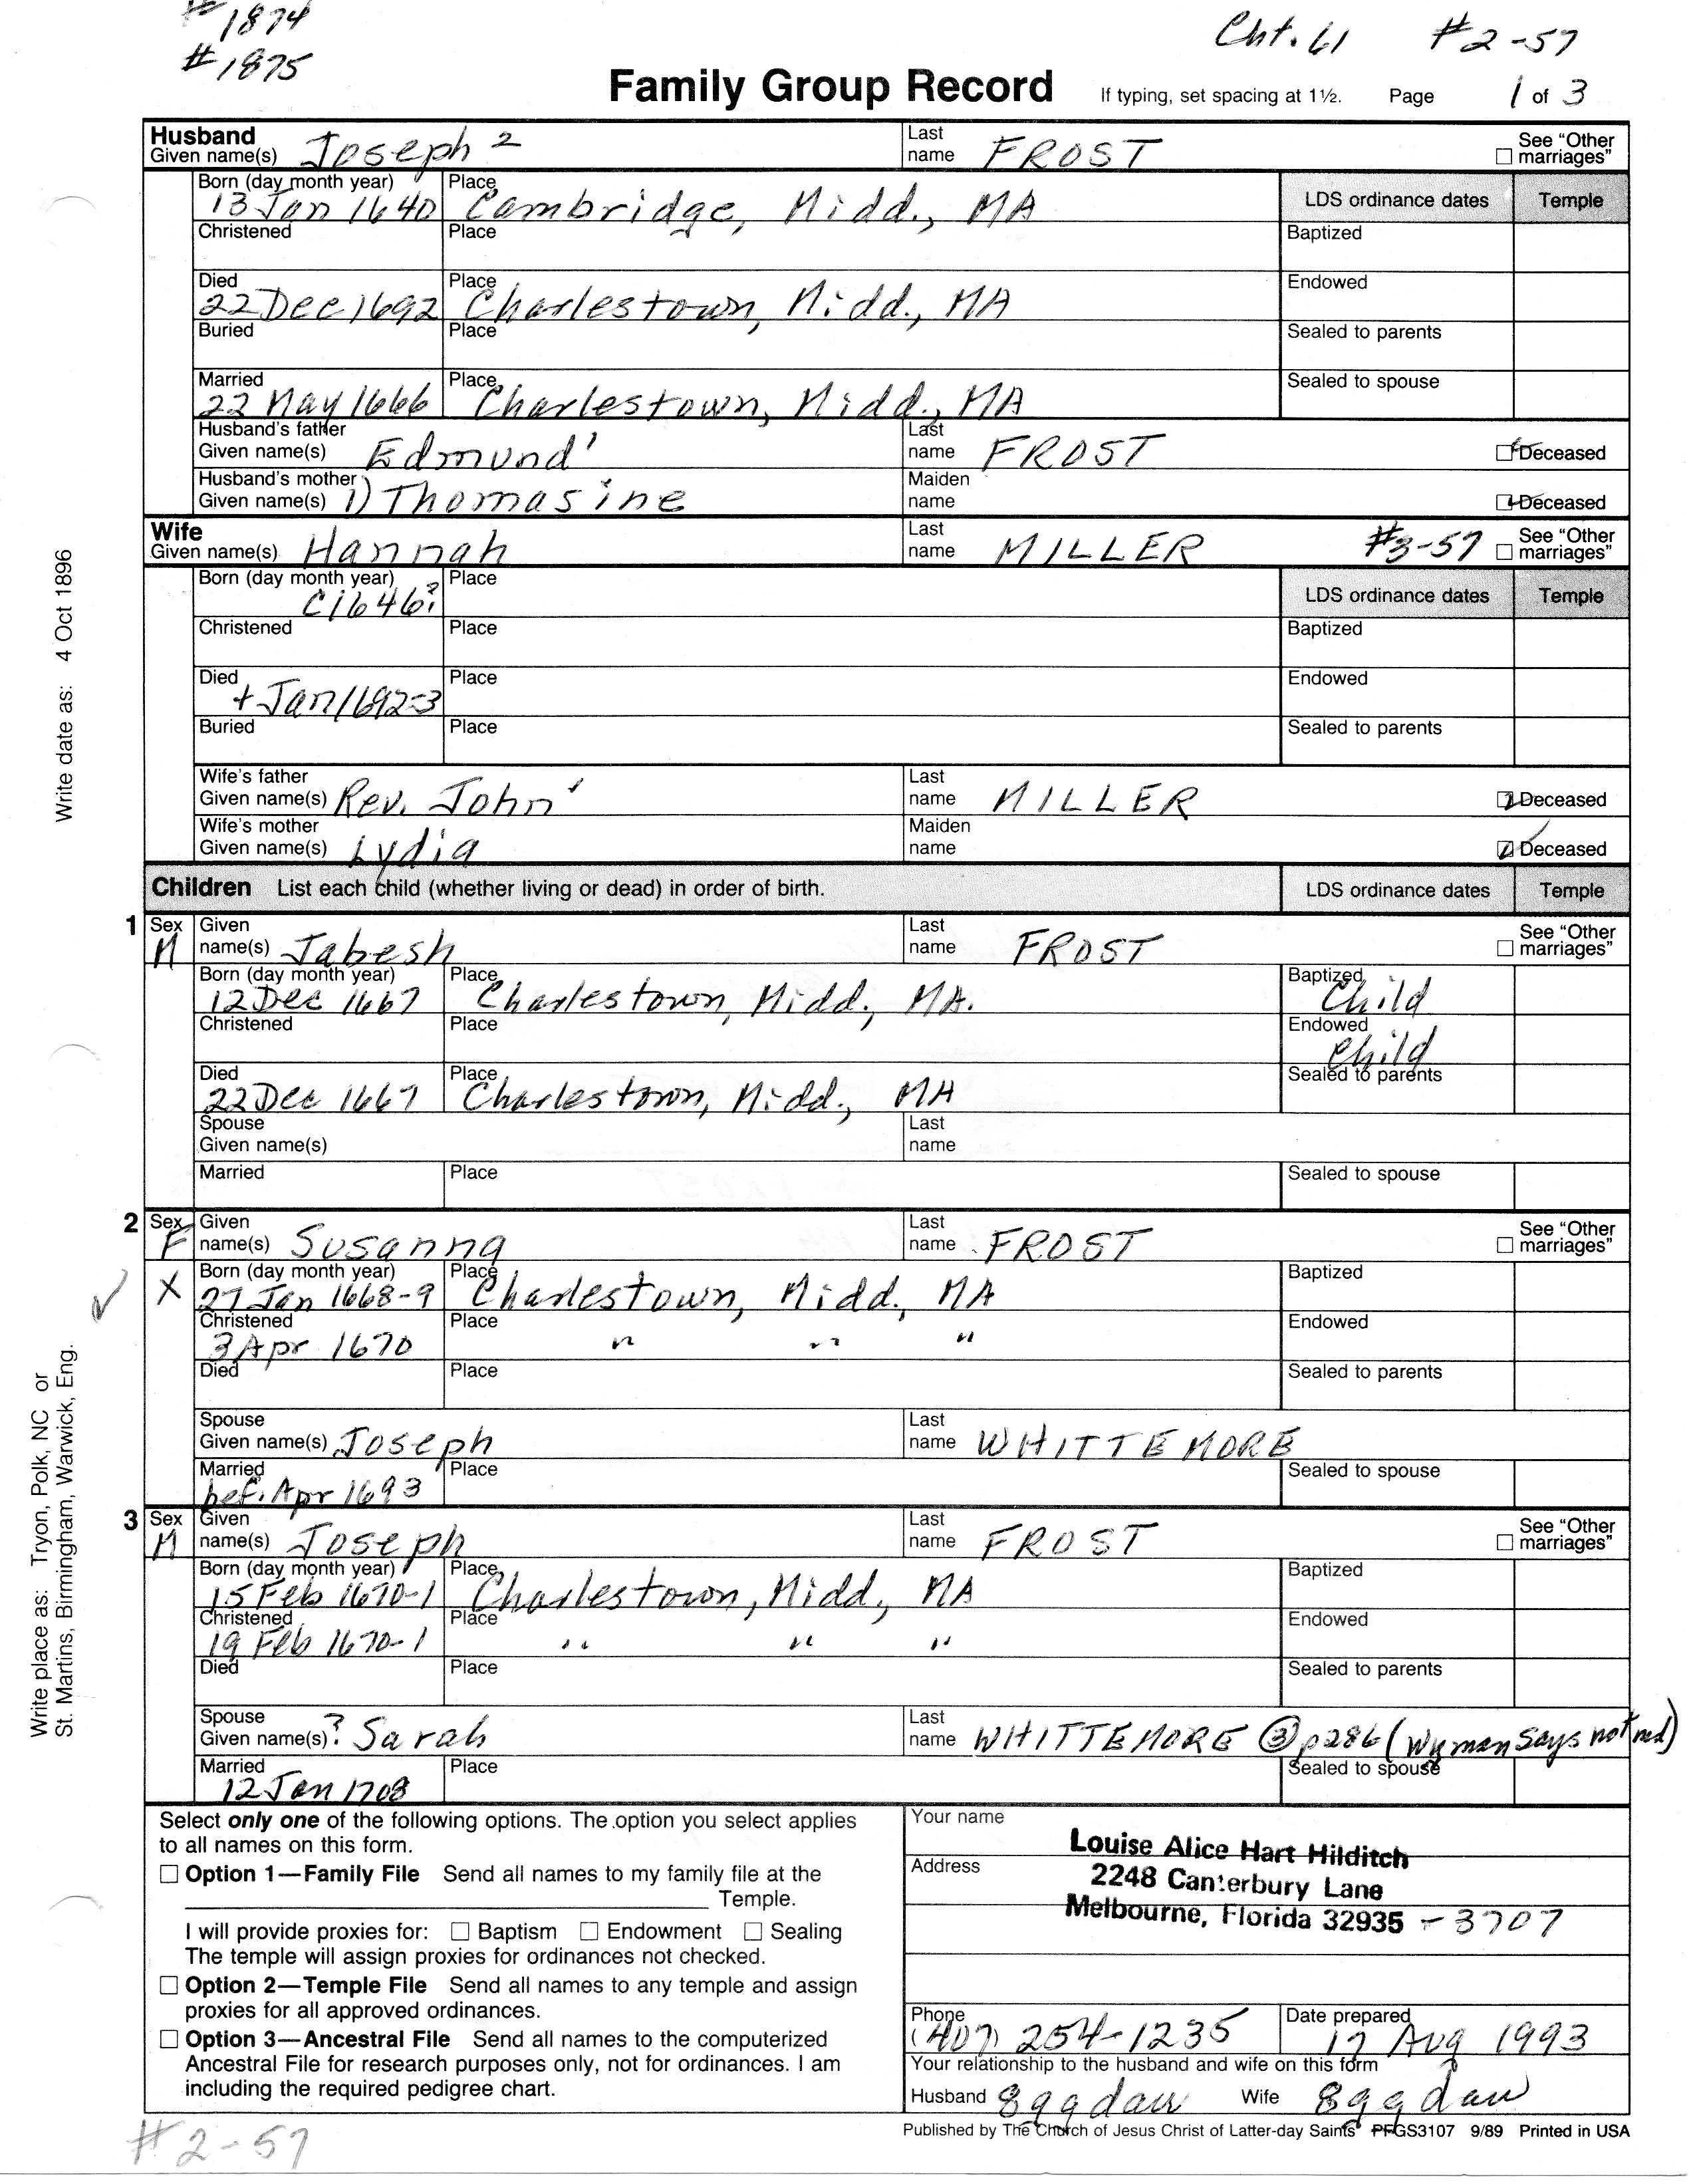 #1874
#1875
Cht. 61 #2-57
Family Group Record If typing, set spacing at 1½. Page 1 of 3
Husband
Given name(s) Joseph 2 Last name FROST See "Other marriages"
Born (day month year) 13 Jan 1640 Place Cambridge, Midd., MA LDS ordinance dates Temple
Christened Place Baptized
Died 22 Dec 1692 Place Charlestown, Midd., MA Endowed
Buried Place Sealed to parents
Married 22 May 1666 Place Charlestown, Midd., MA Sealed to spouse
Husband's father Given name(s) Edmund 1 Last name FROST Deceased
Husband's mother Given name(s) 1) Thomasine Maiden name Deceased
Wife
Given name(s) Hannah Last name MILLER #3-57 See "Other marriages"
Born (day month year) C1646? Place LDS ordinance dates Temple
Christened Place Baptized
Died + Jan 1692-3 Place Endowed
Buried Place Sealed to parents
Wife's father Given name(s) Rev. John 1 Last name MILLER Deceased
Wife's mother Given name(s) Lydia Maiden name Deceased
Children List each child (whether living or dead) in order of birth. LDS ordinance dates Temple
1 Sex M Given name(s) Jabesh Last name FROST See "Other marriages"
Born (day month year) 12 Dec 1667 Place Charlestown, Midd., MA. Baptized Child
Christened Place Endowed Child
Died 22 Dec 1667 Place Charlestown, Midd., MA Sealed to parents
Spouse Given name(s) Last name
Married Place Sealed to spouse
2 Sex F Given name(s) Susanna Last name FROST See "Other marriages"
X Born (day month year) 27 Jan 1668-9 Place Charlestown, Midd., MA Baptized
Christened 3 Apr 1670 Place " " " Endowed
Died Place Sealed to parents
Spouse Given name(s) Joseph Last name WHITTEMORE
Married bef. Apr 1693 Place Sealed to spouse
3 Sex M Given name(s) Joseph Last name FROST See "Other marriages"
Born (day month year) 15 Feb 1670-1 Place Charlestown, Midd., MA Baptized
Christened 19 Feb 1670-1 Place " " " Endowed
Died Place Sealed to parents
Spouse Given name(s) ? Sarah Last name WHITTEMORE ③ p286 (Wyman says not md)
Married 12 Jan 1708 Place Sealed to spouse
Write date as: 4 Oct 1896
Write place as: Tryon, Polk, NC or
St. Martins, Birmingham, Warwick, Eng.
Select only one of the following options. The option you select applies
to all names on this form.
Option 1—Family File Send all names to my family file at the
Temple.
I will provide proxies for: Baptism Endowment Sealing
The temple will assign proxies for ordinances not checked.
Option 2—Temple File Send all names to any temple and assign
proxies for all approved ordinances.
Option 3—Ancestral File Send all names to the computerized
Ancestral File for research purposes only, not for ordinances. I am
including the required pedigree chart.
Your name Louise Alice Hart Hilditch
Address 2248 Canterbury Lane
Melbourne, Florida 32935 -3707
Phone (407) 254-1235 Date prepared 17 Aug 1993
Your relationship to the husband and wife on this form
Husband 8ggdau Wife 8ggdau
Published by The Church of Jesus Christ of Latter-day Saints PFGS3107 9/89 Printed in USA
#2-57